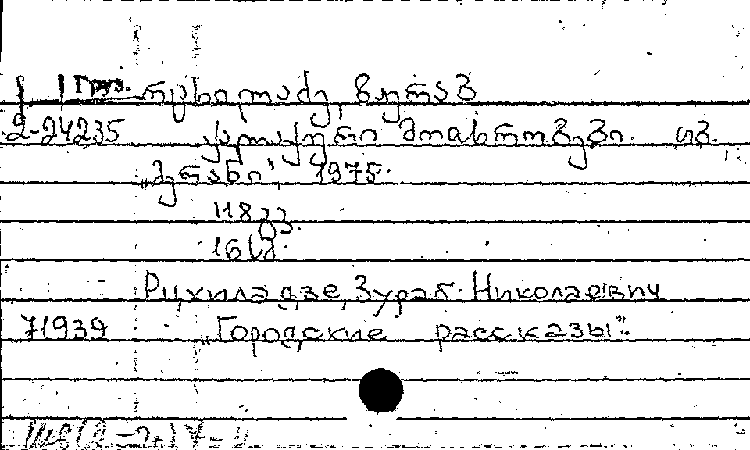 Груз. რცხილაძე, ზურაბ
2-24235 ქალაქური მოთხრობები. თბ.
„მერანი", 1975.
118 გვ.
71939
Рцхиладзе, Зураб Николаевич
„Городские рассказы".